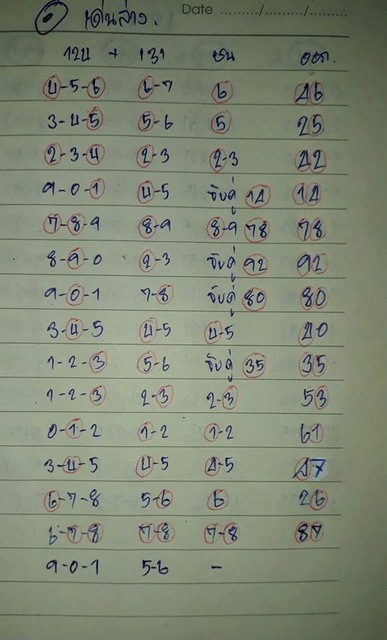 เด่นล่าง. Date ....../....../......
124 + 131 ชน ออก.
4-5-6 6-7 6 46
3-4-5 5-6 5 25
2-3-4 2-3 2-3 42
9-0-1 4-5 จับคู่ 14 14
7-8-9 8-9 8-9 78 78
8-9-0 2-3 จับคู่ 92 92
9-0-1 7-8 จับคู่ 80 80
3-4-5 4-5 4-5 40
1-2-3 5-6 จับคู่ 35 35
1-2-3 2-3 2-3 53
0-1-2 1-2 1-2 61
3-4-5 4-5 4-5 47
6-7-8 5-6 6 26
6-7-8 7-8 7-8 87
9-0-1 5-6 -